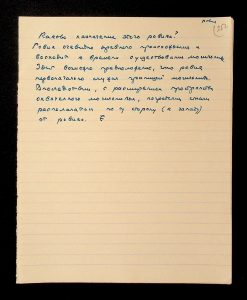 ровик
251
Каково назначение этого ровика?
Ровик очевидно древнего происхождения и
восходит к времени существования могильника.
Можно предположить, что ровик
первоначально служил границей могильника.
Впоследствии, с расширением
могильника, погребения стали
располагаться по ту сторону (к западу)
от ровика.